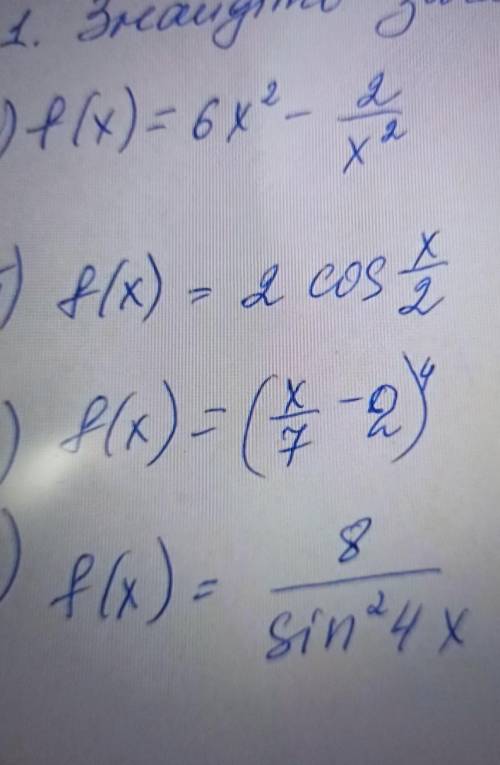 1. Знайдіть
) f(x) = 6x² - 2/x²
) f(x) = 2 cos x/2
) f(x) = (x/7 - 2)⁴
) f(x) = 8/sin²4x